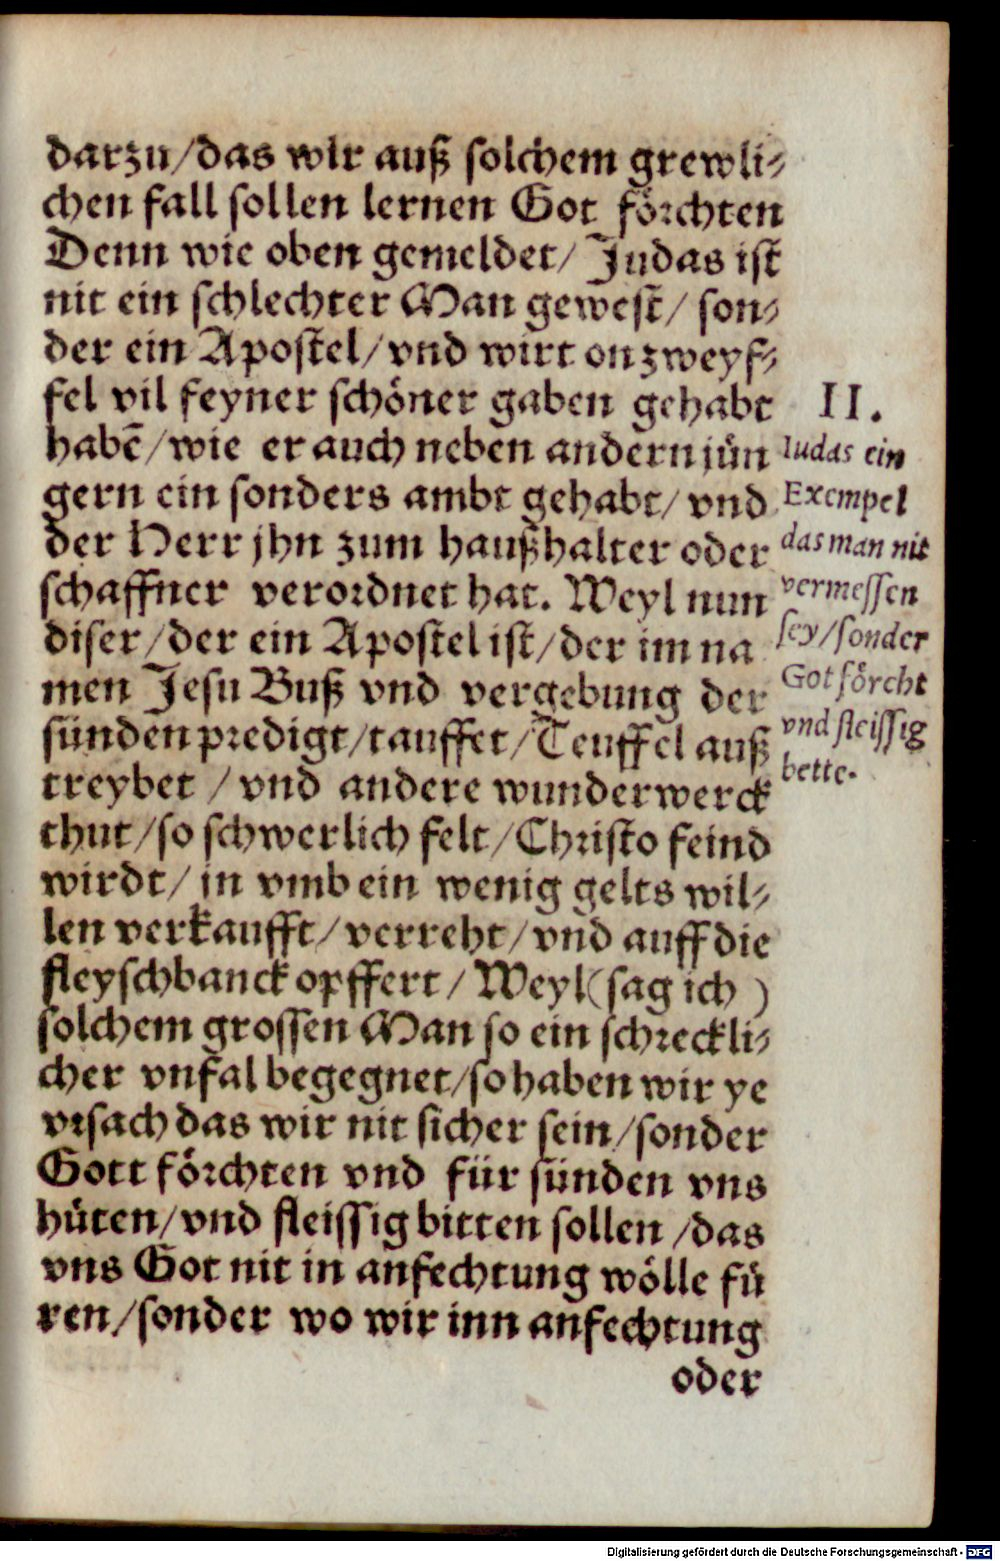 darzu/das wir auß solchem grewli⸗
chen fall sollen lernen Got förchten
Denn wie oben gemeldet/ Judas ist
nit ein schlechter Man gewest/ son⸗
der ein Apostel/vnd wirt on zweyf⸗
fel vil feyner schöner gaben gehabt
habē/wie er auch neben andern jün
gern ein sonders ambt gehabt/ vnd
der Herr jhn zum haußhalter oder
schaffner verordnet hat. Weyl nun
diser/der ein Apostel ist/der im na
men Jesu Buß vnd vergebung der
sünden predigt/tauffet/Teuffel auß
treybet / vnd andere wunderwerck
thut/so schwerlich felt/Christo feind
wirdt/ jn vmb ein wenig gelts wil⸗
len verkaufft/verreht/vnd auff die
fleyschbanck opffert/ Weyl (sag ich )
solchem grossen Man so ein schreckli⸗
cher vnfal begegnet/so haben wir ye
vrsach das wir nit sicher sein/sonder
Gott förchten vnd für sünden vns
hüten/vnd fleissig bitten sollen /das
vns Got nit in anfechtung wölle fü
ren/sonder wo wir inn anfechtung
oder
II.
Iudas ein
Exempel
das man nit
vermessen
sey/sonder
Got förcht
vnd fleissig
bette.
Digitalisierung gefördert durch die Deutsche Forschungsgemeinschaft - DFG